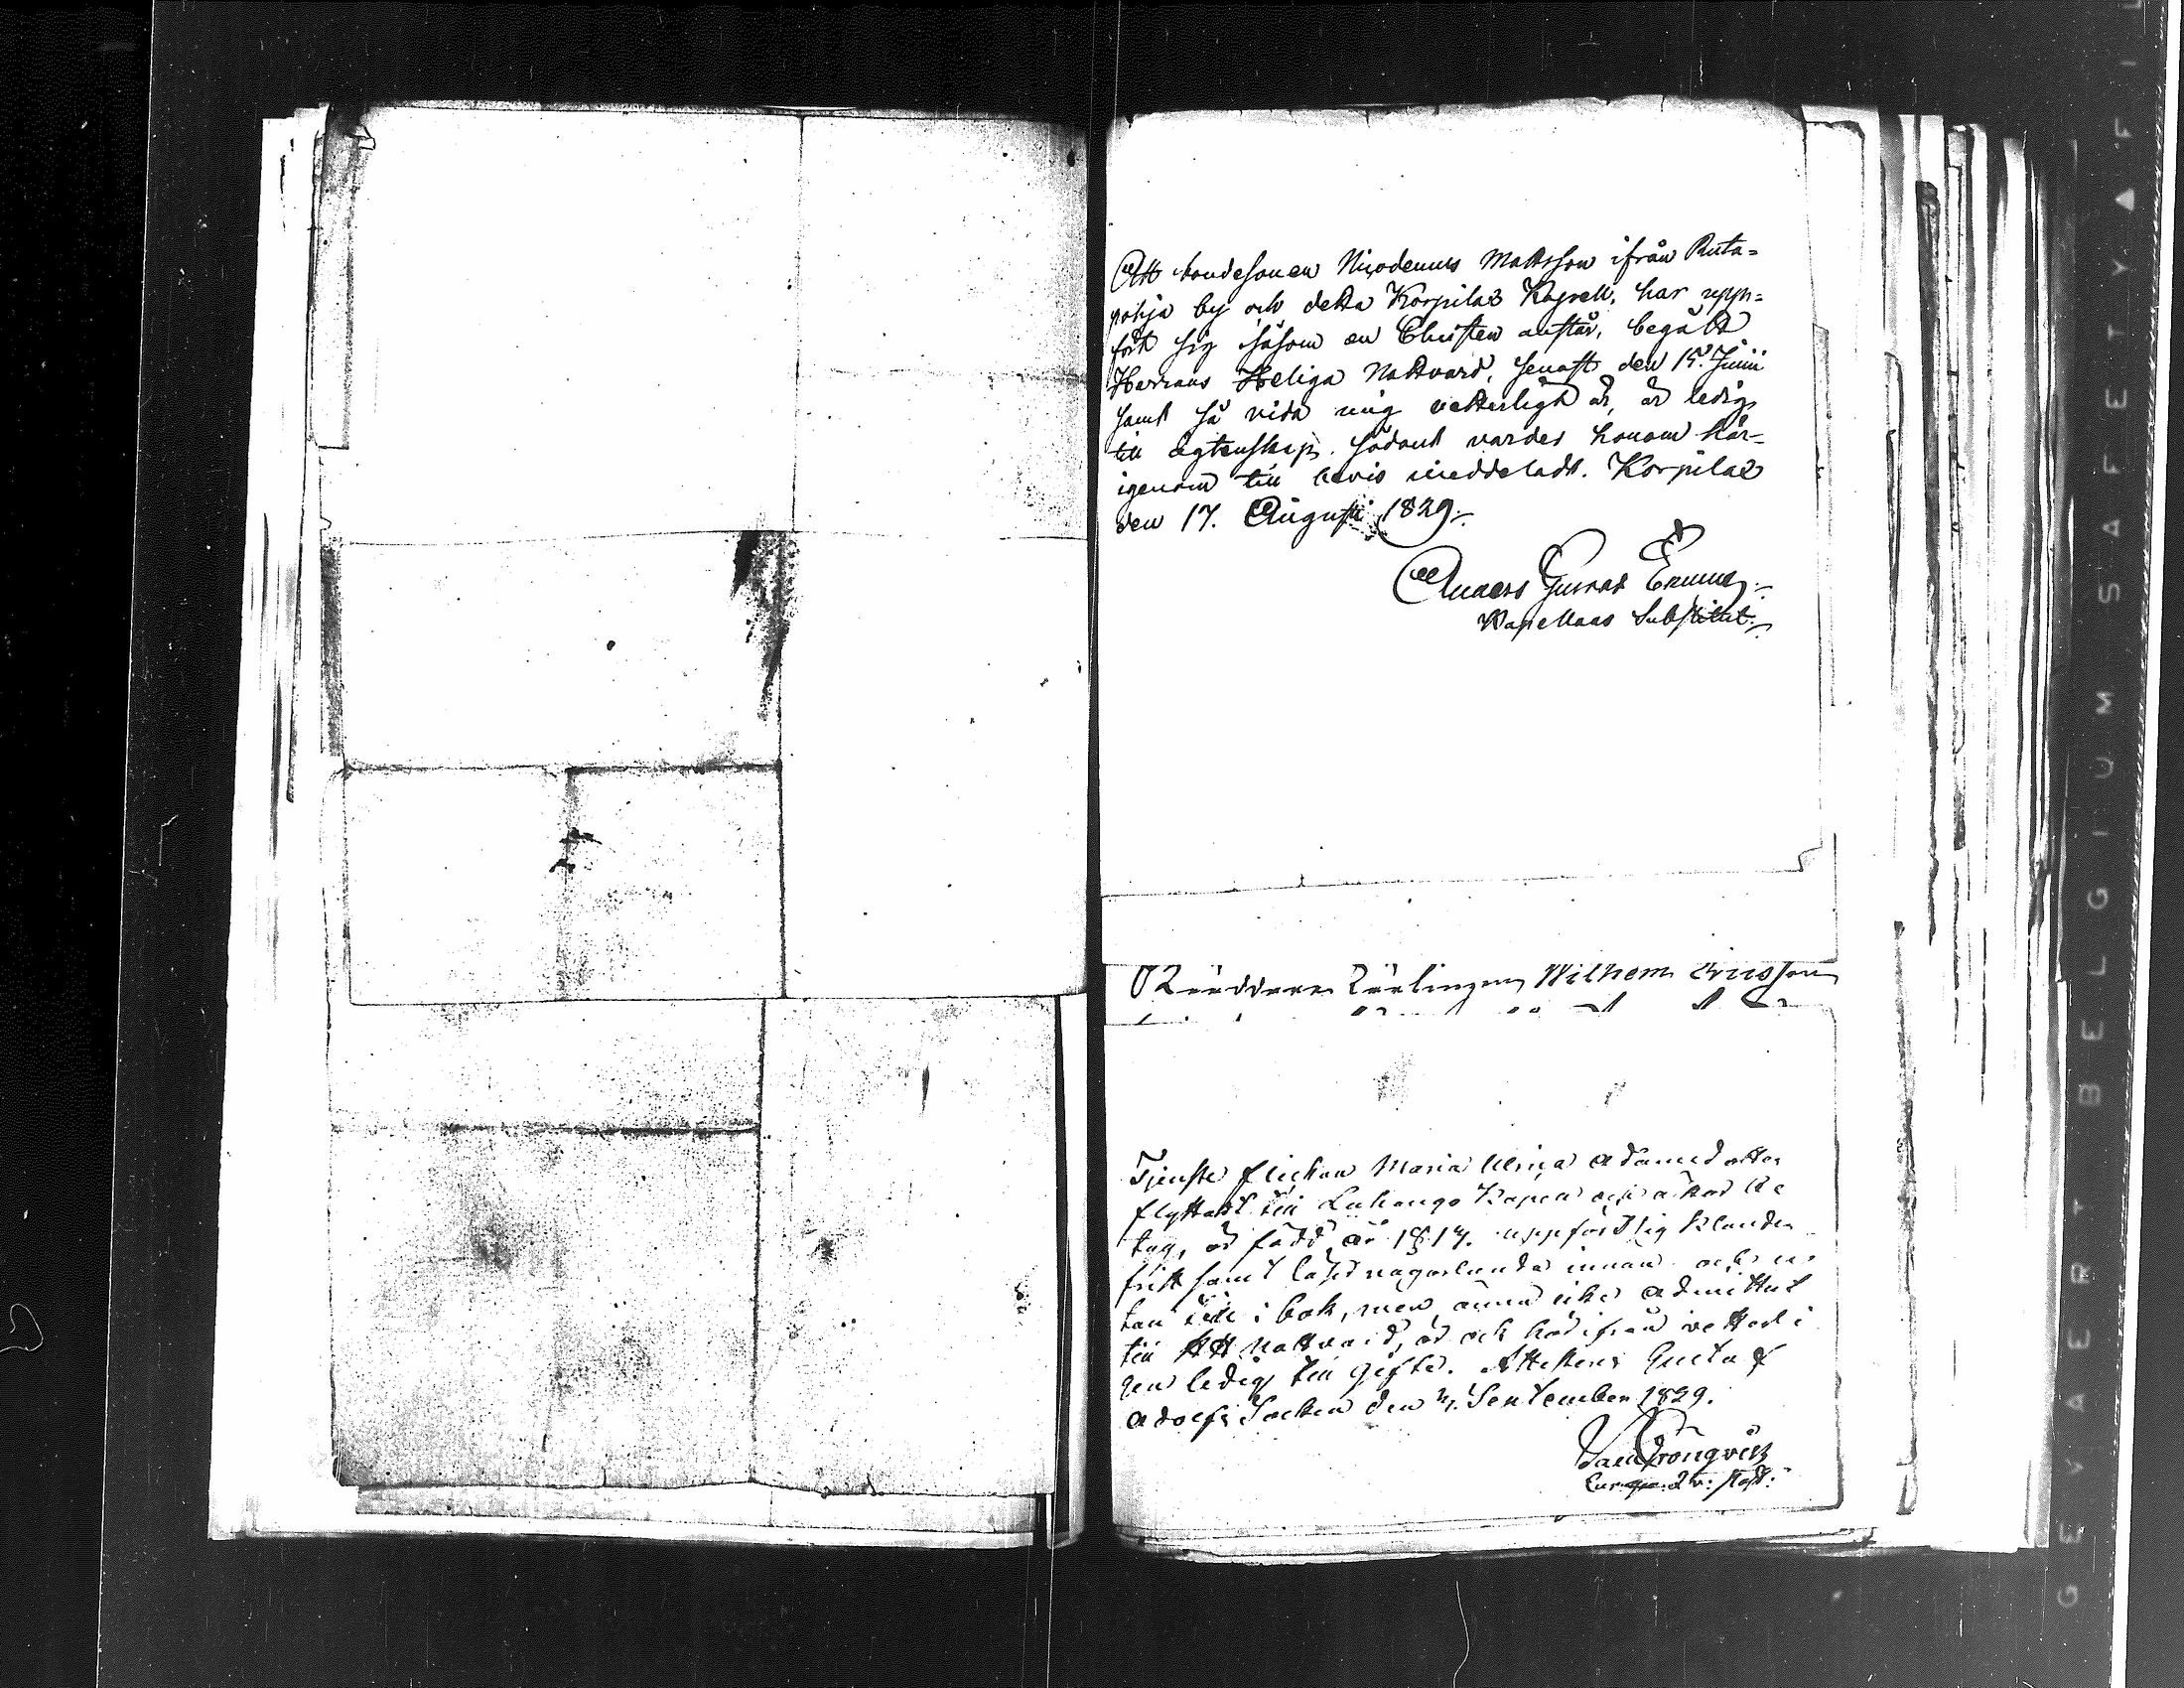 Att bondesonen Nicodemus Mattsson ifrån Ruta=
pohja by och detta Korpilax Kapell, har upp=
fört sig såsom en Christen anstår, begått
Herrans Heliga Nattvard, senast den 15. Junii
samt så vida mig vetterligt är, är ledig
till ägtenskap. Sådant varder honom här-
igenom till bevis meddeladt. Korpilax
den 17. Augusti 1829.
Anders Gustaf
Kapellans Substitut.
Wilhem Ericsson
Tjenste flickan Maria Ulrica Adamsdotter
flyttar till Luhango Kapell och åter
tag, är född år 1817. uppfört sig klander
fritt samt läser någorlunda innan och u
tan till i bok, men ännu icke admitterad
till HH Nattvard, är och härifrån vetterli
gen ledig till gifte. Attesteras Gustaf
Adolfs Socken den 4. September 1829.
GEVAERT BELGIUM SAFETY ▲ FIL